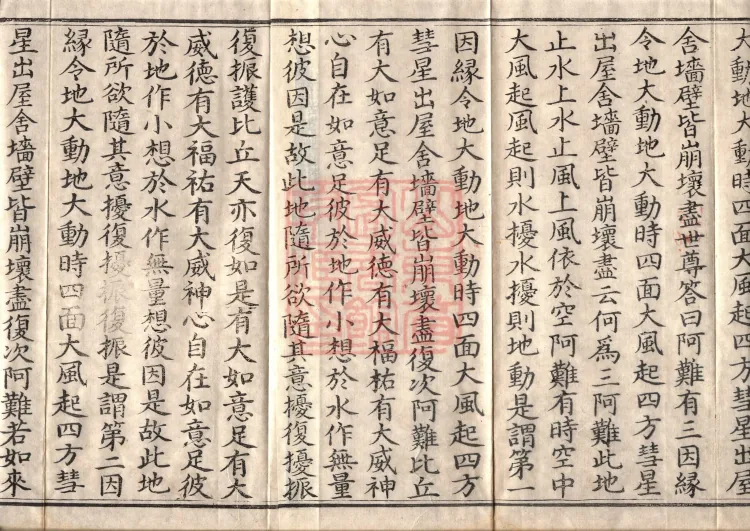 大動地大動時四面大風起四方彗星出屋
舍墻壁皆崩壞盡世尊答曰阿難有三因緣
令地大動地大動時四面大風起四方彗星
出屋舍墻壁皆崩壞盡云何為三阿難此地
止水上水止風上風依於空阿難有時空中
大風起風起則水擾水擾則地動是謂第一
因緣令地大動地大動時四面大風起四方
彗星出屋舍墻壁皆崩壞盡復次阿難比丘
有大如意足有大威德有大福祐有大威神
心自在如意足彼於地作小想於水作無量
想彼因是故此地隨所欲隨其意擾復擾振
復振護比丘天亦復如是有大如意足有大
威德有大福祐有大威神心自在如意足彼
於地作小想於水作無量想彼因是故此地
隨所欲隨其意擾復擾振復振是謂第二因
緣令地大動地大動時四面大風起四方彗
星出屋舍墻壁皆崩壞盡復次阿難若如來